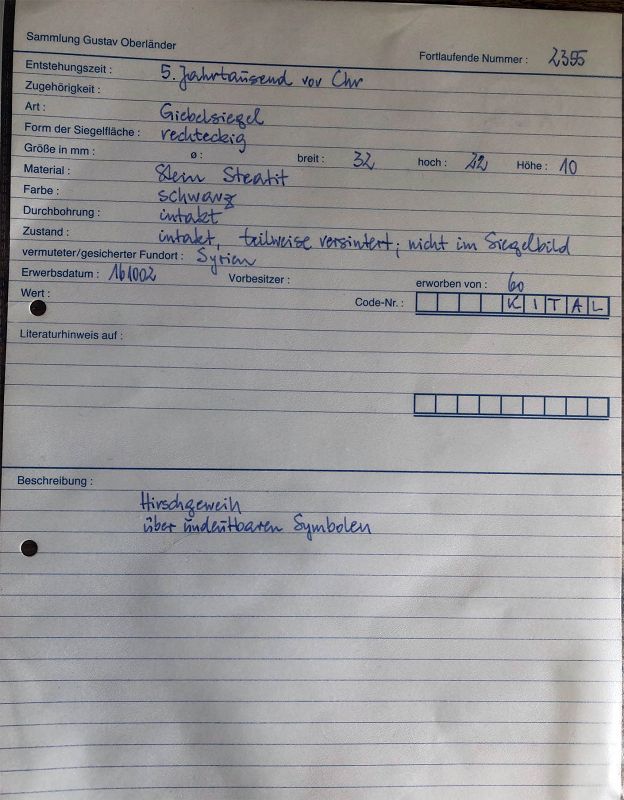 Sammlung Gustav Oberländer
Fortlaufende Nummer : 2395
Entstehungszeit : 5. Jahrtausend vor Chr
Zugehörigkeit :
Art : Giebelsiegel
Form der Siegelfläche : rechteckig
Größe in mm : ø : breit : 32 hoch : 22 Höhe : 10
Material : Stein Steatit
Farbe : schwarz
Durchbohrung : intakt
Zustand : intakt, teilweise versintert; nicht im Siegelbild
vermuteter/gesicherter Fundort : Syrien
Erwerbsdatum : 161002 Vorbesitzer : erworben von : 60
Wert : Code-Nr. : KITAL
Literaturhinweis auf :
Beschreibung :
Hirschgeweih
über undeutbaren Symbolen